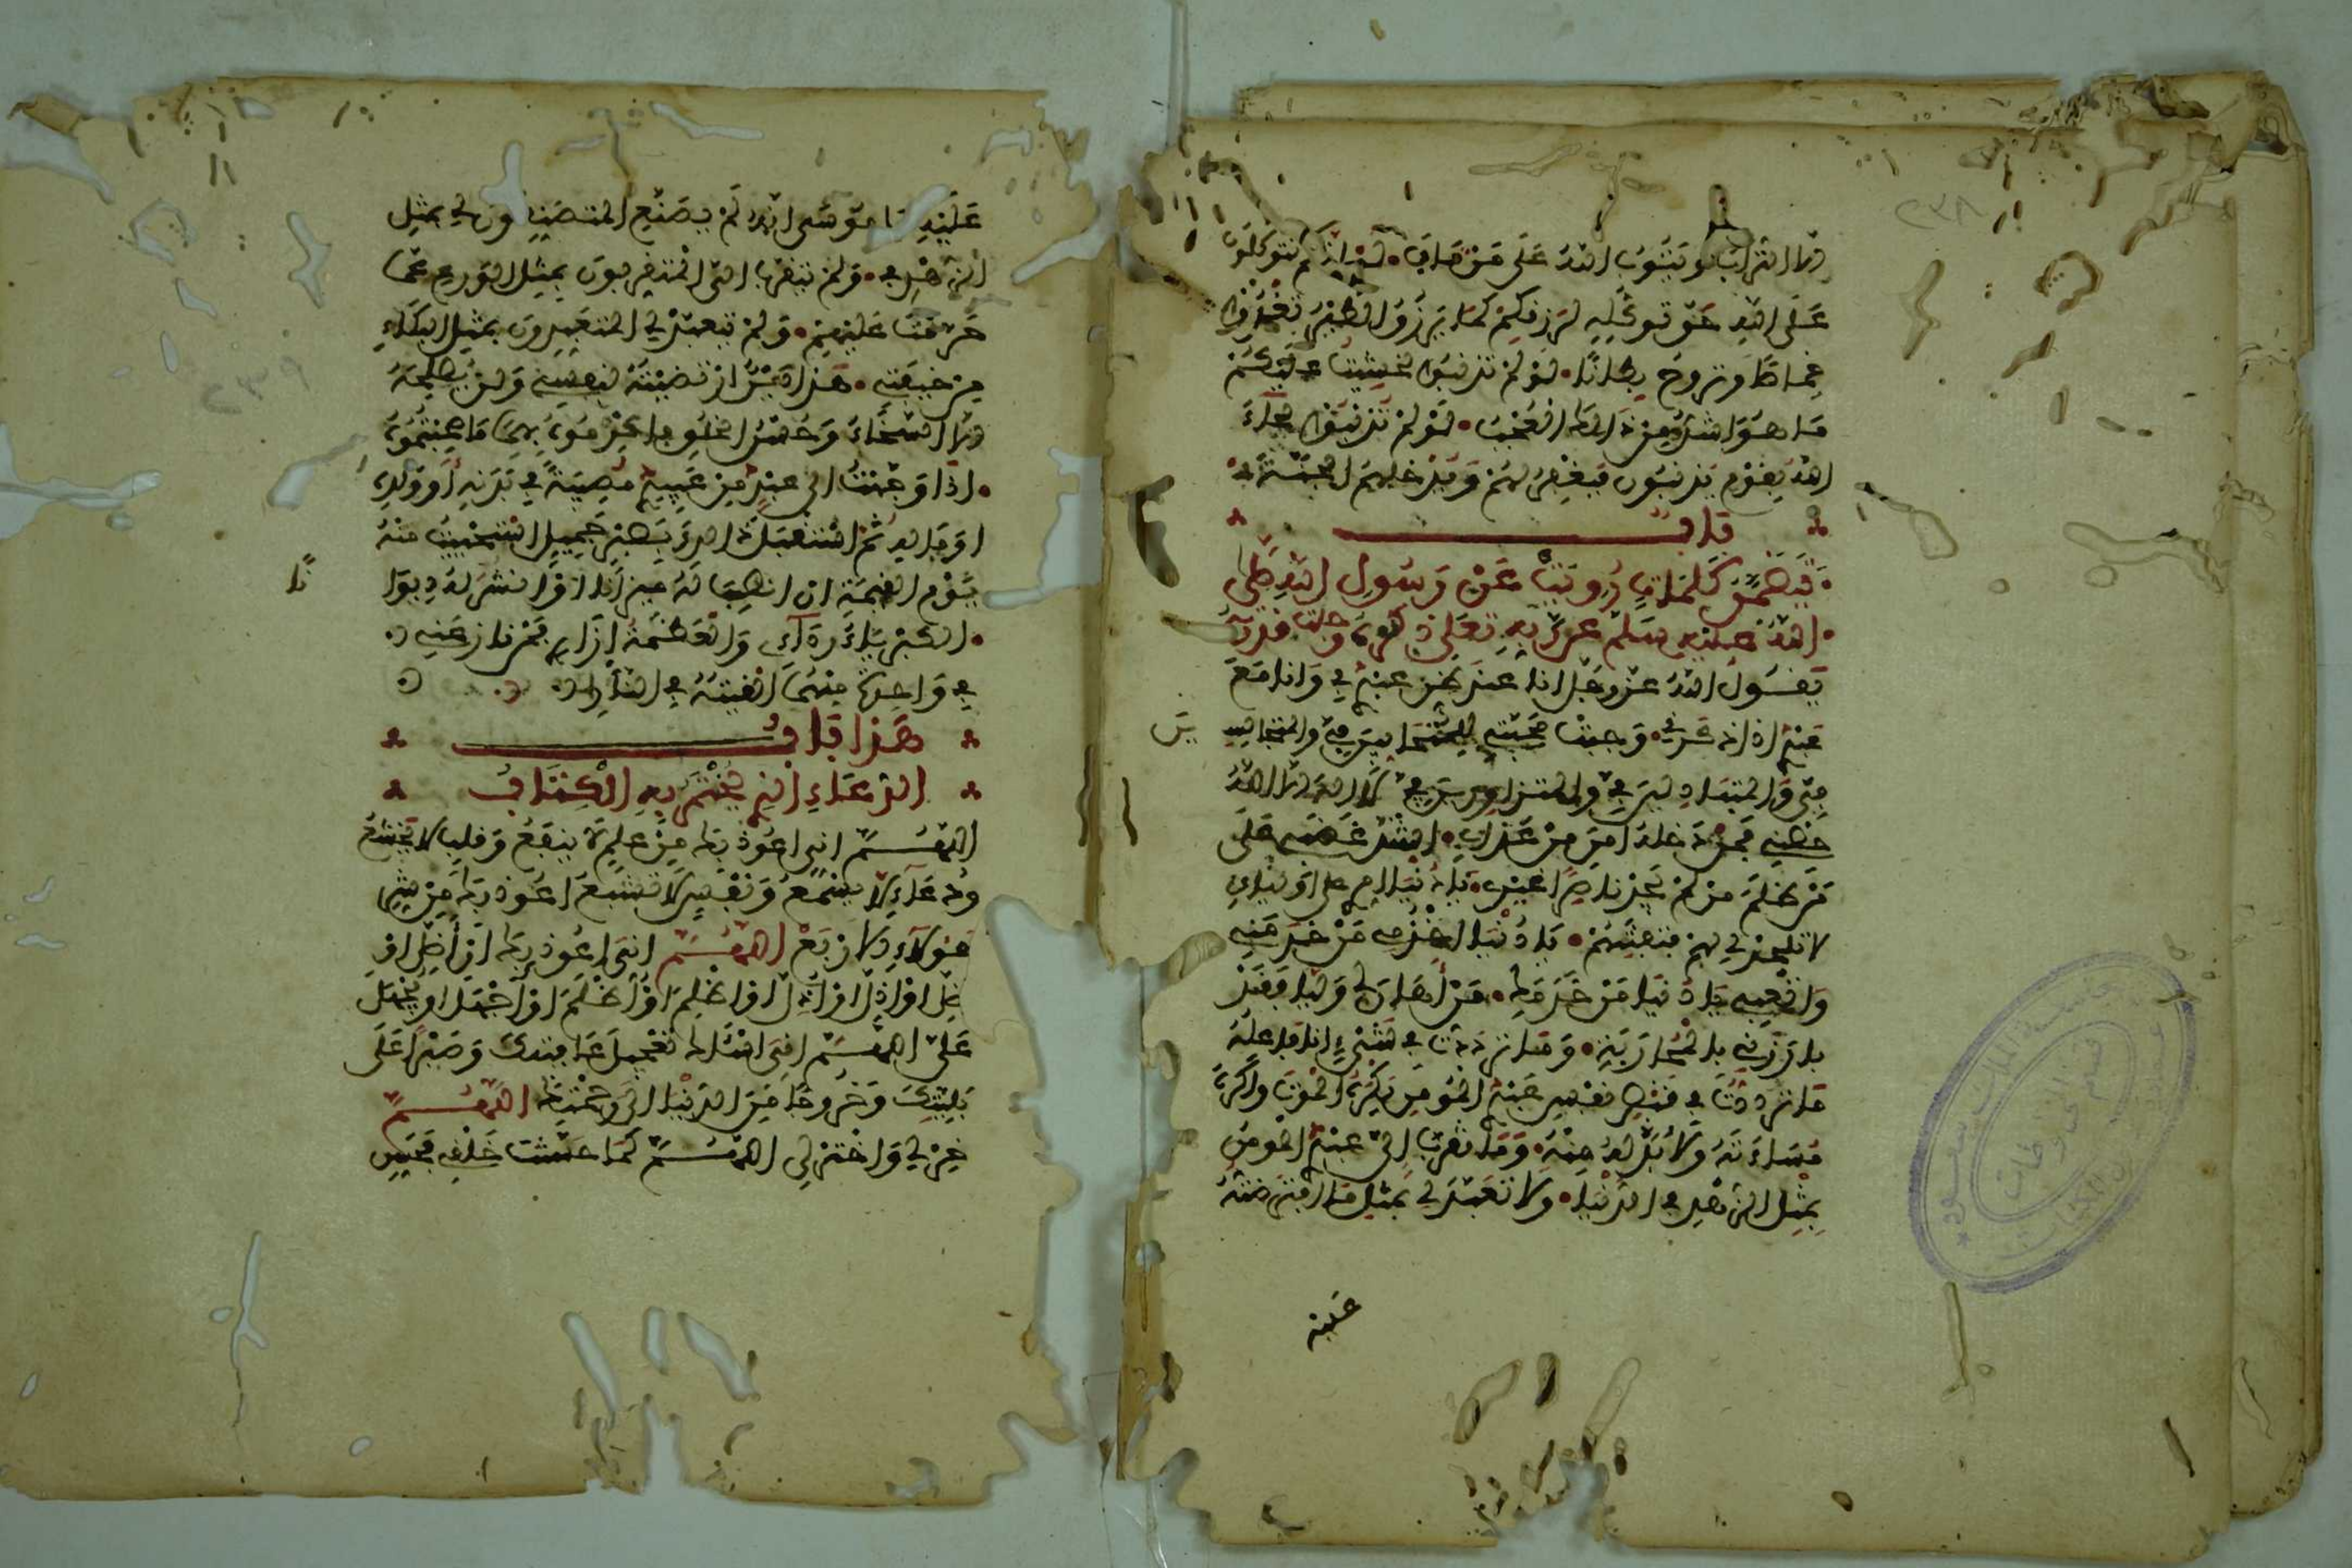 ٢٣٨
الا التراب ويتوب الله على من تاب لو انكم تتوكلون
على الله حق توكله لرزقكم كما يرزق الطير تغدوا
خماصا وتروح بطانا لو لم تذنبوا لخشيت عليكم
ما هو اشد من ذالك العجب لو لم تذنبوا لجاء
الله بقوم يذنبون فيغفر لهم ويدخلهم الجنة
باب
يتضمن كلمات رويت عن رسول الله صلى
الله عليه وسلم عن ربه تعلى
يقول الله عز وجل انا عند ظن عبدي بي وانا مع
عبدي اذا ذكرني وجبت محبتي للمتحابين في والمتجالسين
في والمتباذلين في والمتزاورين في لا اله الا الله
حصني فمن دخله امن من عذابي اشتد غضبي على
من ظلم من لم يجد ناصرا غيري يا دنيا مري على اوليائي
لا تحلولي لهم فتفتنهم يا دنيا اخدمي من خدمني
واتعبي يا دنيا من خدمك من اهان لي وليا فقد
بارزني بالمحاربة وما ترددت في شيء انا فاعله
ما ترددت في قبض نفس عبدي المومن يكره الموت واكره
مساءته ولا بد له منه وما تقرب الي عبدي المومن
بمثل الزهد في الدنيا ولا تعبد لي بمثل ما افترضته
عليه
٢٣٩
عليه يا موسى انه لم يتصنع المتصنعون لي بمثل
الزهد في ولم يتقرب الي المتقربون بمثل الورع عما
حرمت عليهم ولم يتعبد لي المتعبدون بمثل البكاء
من خيفتي هذا دين ارتضيته لنفسي ولن يصلحه
الا السخاء وحسن الخلق فاكرموه بهما ما صحبتموه
اذا وجهت الى عبد من عبيدي مصيبة في بدنه او ولده
او ماله ثم استقبل ذالك بصبر جميل استحييت منه
يوم القيمة ان انصب له ميزانا او انشر له ديوانا
الكبرياء رداءي والعظمة ازاري فمن نازعني
في واحدة منهما القيته في النار
هذا باب
الدعاء الذي يختم به الكتاب
اللهم اني اعوذ بك من علم لا ينفع وقلب لا يخشع
ودعاء لا يسمع ونفس لا تشبع اعوذ بك من شر
هولاء الاربع اللهم اني اعوذ بك ان اضل او
اضل او ازل او ازل او اظلم او اظلم او اجهل او يجهل
علي اللهم اني اسئلك تعجيل عافيتك وصبرا على
بليتك وخروجا من الدنيا الى رحمتك اللهم
خر لي واختر لي اللهم كما حسنت خلقي فحسن